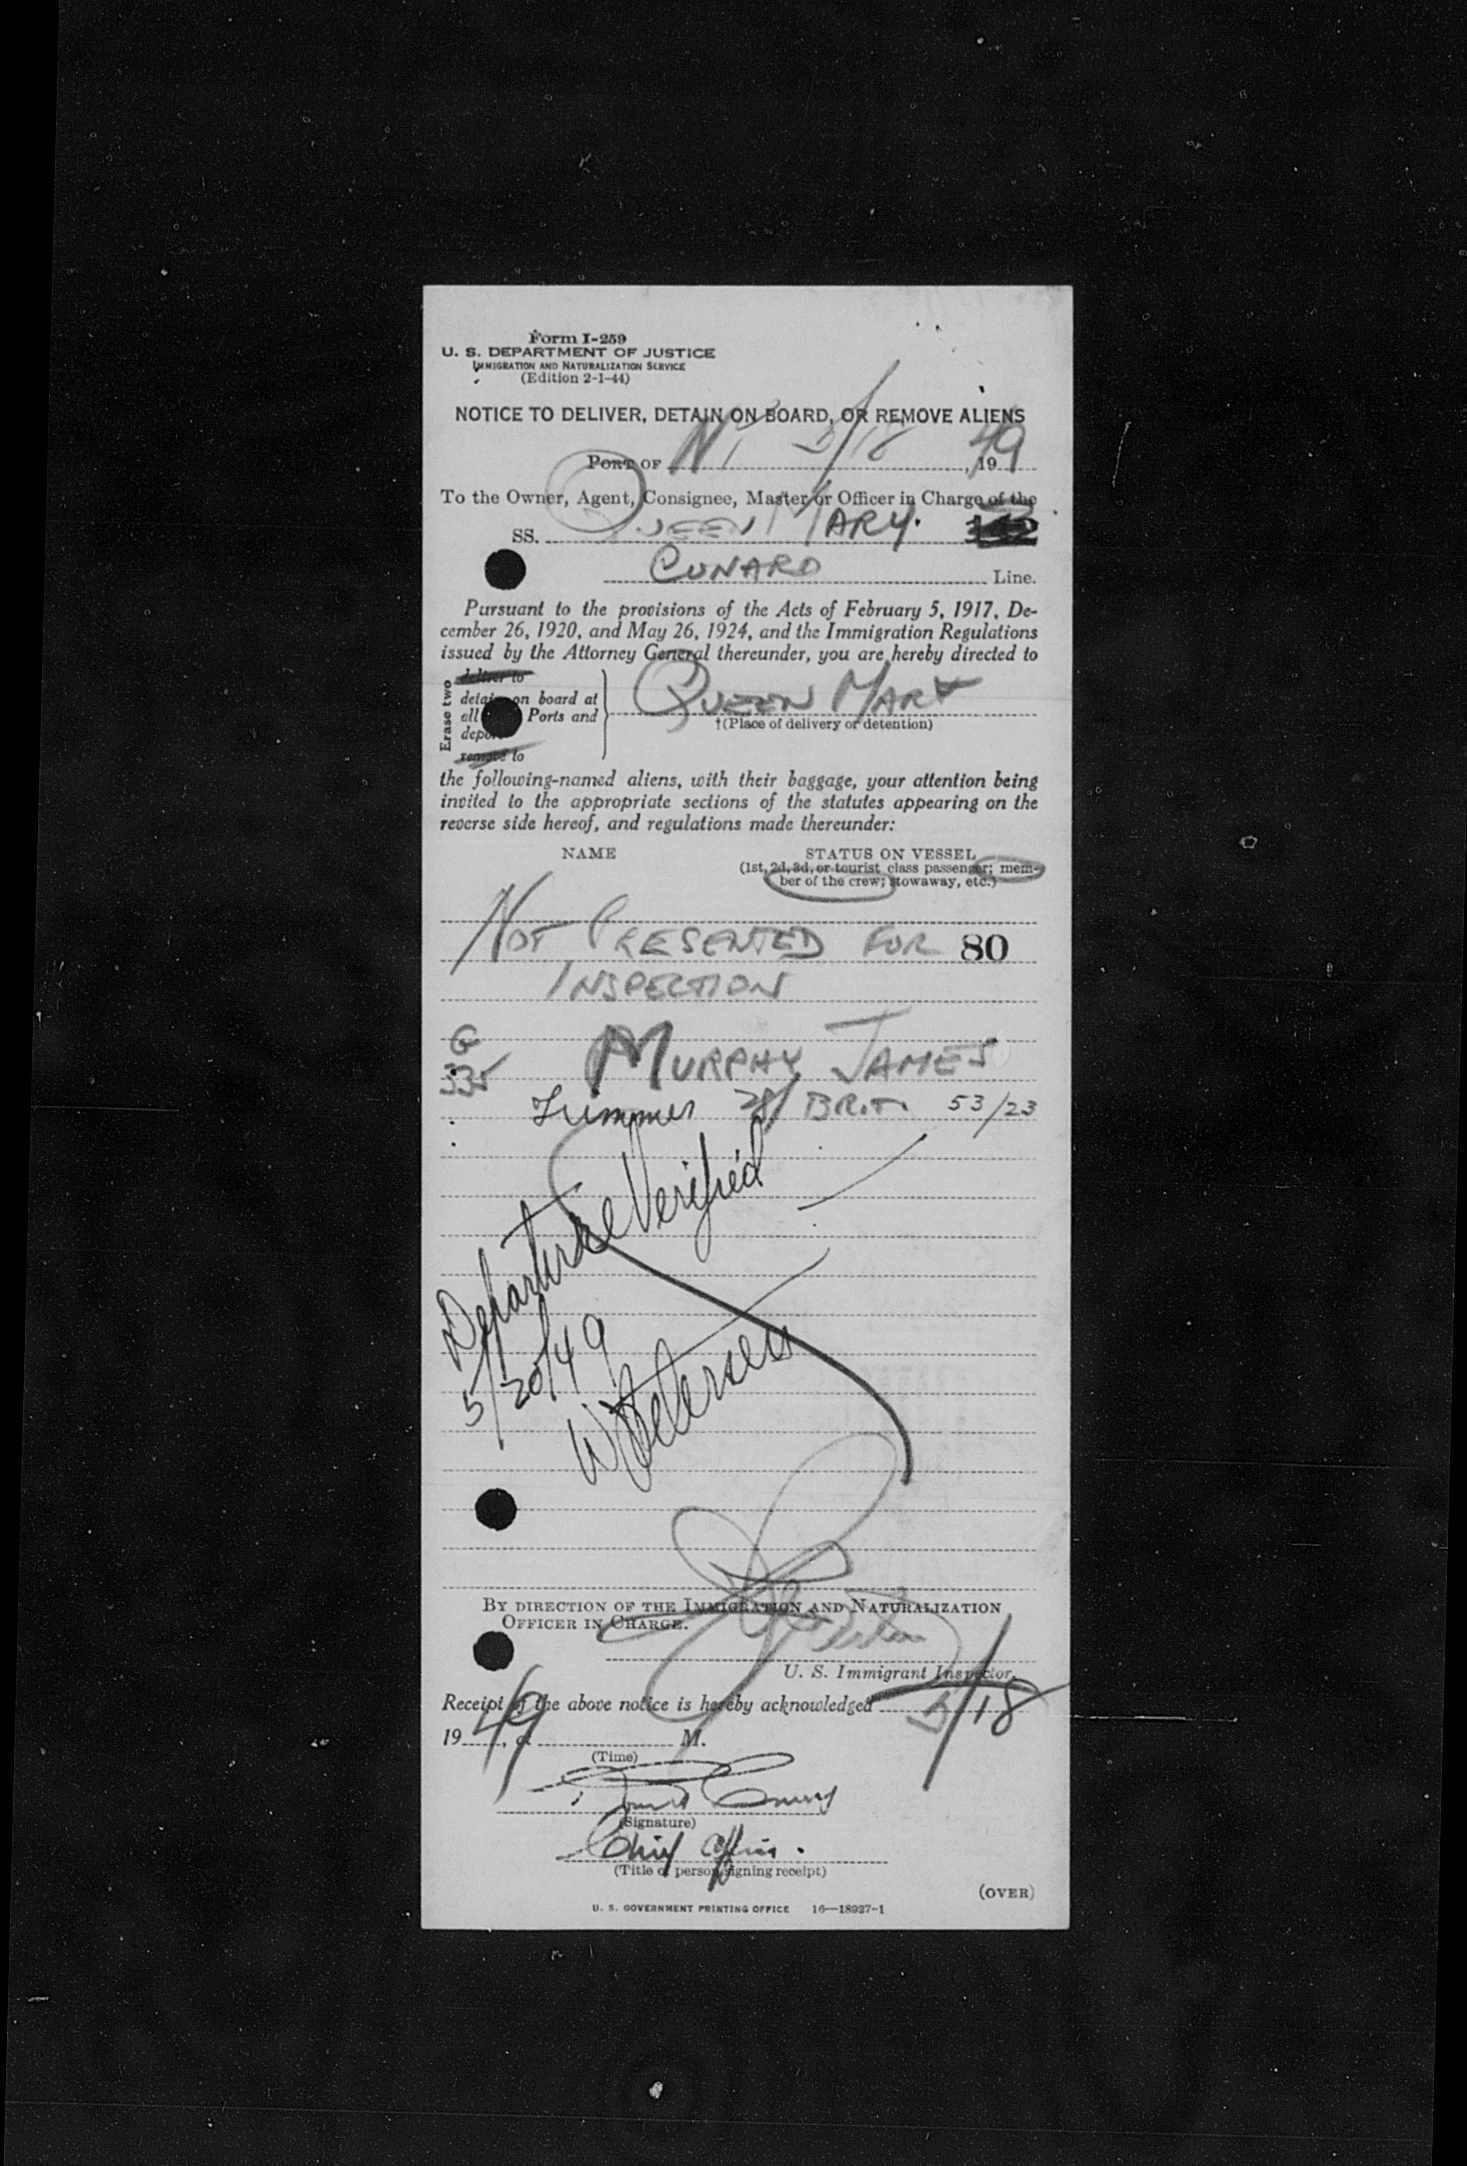 Form I-259
U. S. DEPARTMENT OF JUSTICE
IMMIGRATION AND NATURALIZATION SERVICE
(Edition 2-1-44)
NOTICE TO DELIVER, DETAIN ON BOARD, OR REMOVE ALIENS
PORT OF NY 5/18, 1949
To the Owner, Agent, Consignee, Master or Officer in Charge of the
SS. QUEEN MARY. 142
CUNARD Line.
Pursuant to the provisions of the Acts of February 5, 1917, De-
cember 26, 1920, and May 26, 1924, and the Immigration Regulations
issued by the Attorney General thereunder, you are hereby directed to
Erase two
deliver to
detain on board at
all Ports and
depo
remove to
QUEEN MARY
†(Place of delivery or detention)
the following-named aliens, with their baggage, your attention being
invited to the appropriate sections of the statutes appearing on the
reverse side hereof, and regulations made thereunder:
NAME STATUS ON VESSEL
(1st, 2d, 3d, or tourist class passenger; mem-
ber of the crew; stowaway, etc.)
NOT PRESENTED FOR 80
INSPECTION
G MURPHY JAMES
335
Trimmer 28/ BRIT. 53/23
Departure Verified
5/20/49
W Petersen
BY DIRECTION OF THE IMMIGRATION AND NATURALIZATION
OFFICER IN CHARGE.
U. S. Immigrant Inspector.
Receipt of the above notice is hereby acknowledged 5/18
1949, at M.
(Time)
(Signature)
Chief Officer.
(Title of person signing receipt)
(OVER)
U. S. GOVERNMENT PRINTING OFFICE 16—18927-1